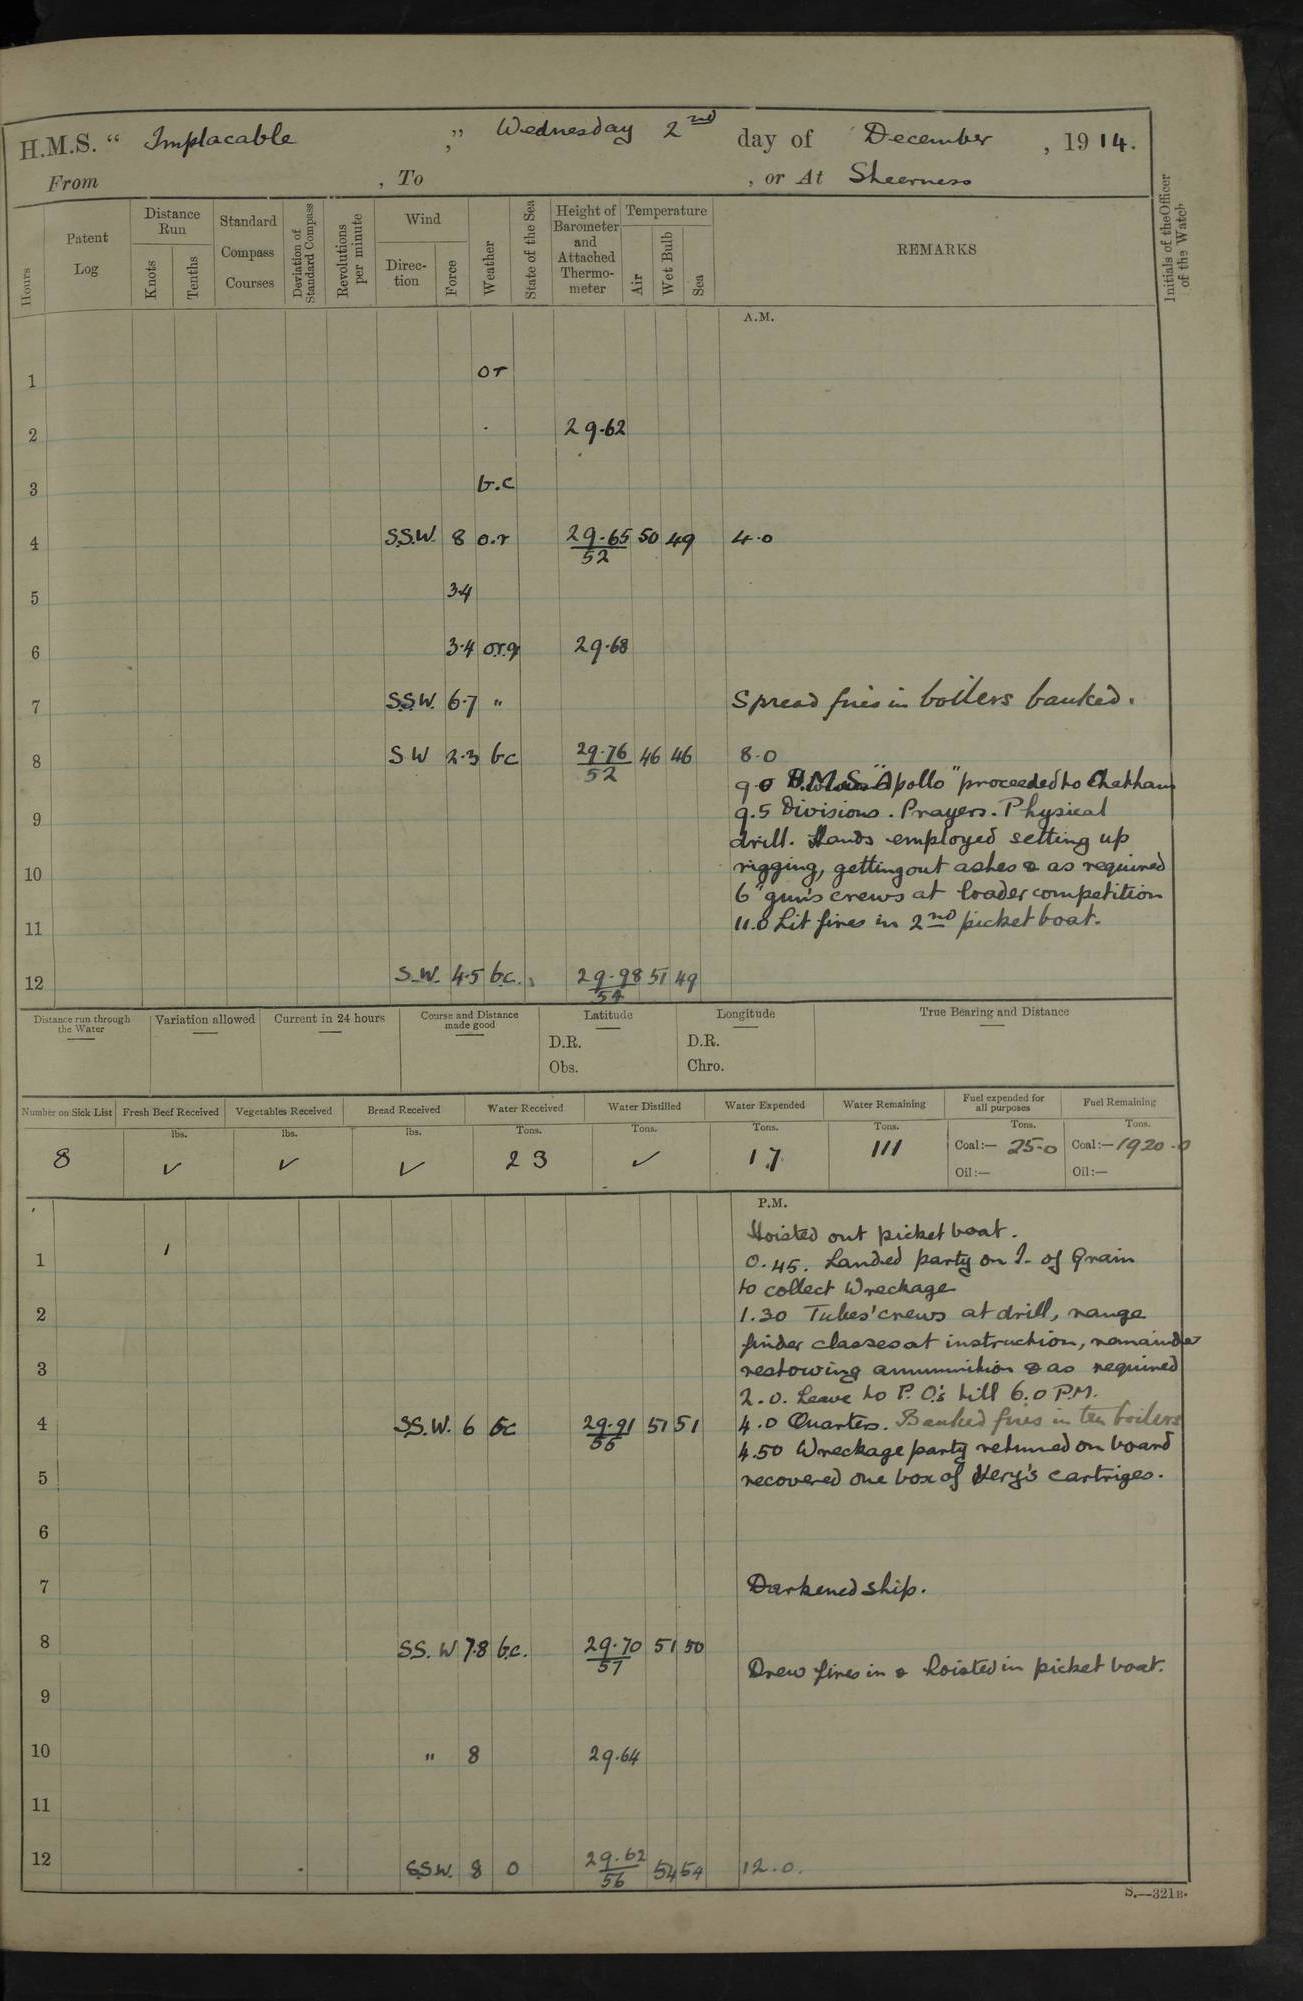 H.M.S. “ Implacable ,” Wednesday 2nd day of December , 1914.
From , To , or At Sheerness
Hours
Patent Log
Distance Run
Knots
Tenths
Standard Compass Courses
Deviation of Standard Compass
Revolutions per minute
Wind
Direc- tion
Force
Weather
State of the Sea
Height of Barometer and Attached Thermo- meter
Temperature
Air
Wet Bulb
Sea
REMARKS
Initials of the Officer of the Watch
A.M.
1 or
2 · 29.62
3 b.c
4 S.S.W. 8 o.r 29.65/52 50 49 4.0
5 3.4
6 3.4 o.r.q 29.68
7 S.S.W. 6.7 " Spread fires in boilers banked.
8 SW 2.3 bc 29.76/52 46 46 8.0
9.0 H.M.S. "Apollo" proceeded to Chatham
9 9.5 Divisions. Prayers. Physical
drill. Hands employed setting up
10 rigging, getting out ashes & as required
6" gun's crews at loader competition
11 11.0 Lit fires in 2nd picket boat.
12 S.W. 4.5 b.c. 29.98/54 51 49
Distance run through the Water
Variation allowed
Current in 24 hours
Course and Distance made good
Latitude
D.R.
Obs.
Longitude
D.R.
Chro.
True Bearing and Distance
Number on Sick List
Fresh Beef Received
Vegetables Received
Bread Received
Water Received
Water Distilled
Water Expended
Water Remaining
Fuel expended for all purposes
Fuel Remaining
lbs. lbs. lbs. Tons. Tons. Tons. Tons. Tons. Tons.
8 ✓ ✓ ✓ 23 ✓ 17 111 Coal:— 25.0 Coal:— 1920.0
Oil:— Oil:—
P.M.
Hoisted out picket boat.
1 0.45. Landed party on I. of Grain
to collect Wreckage
2 1.30 Tubes' crews at drill, range
finder classes at instruction, remainder
3 restowing ammunition & as required
2.0. Leave to P.O's till 6.0 P.M.
4 S.S.W. 6 bc 29.91/56 51 51 4.0 Quarters. Banked fires in ten boilers
4.50 Wreckage party returned on board
5 recovered one box of Very's cartriges.
6
7 Darkened ship.
8 S.S.W 7.8 b.c. 29.70/57 51 50
Drew fires in & hoisted in picket boat.
9
10 " 8 29.64
11
12 S.S.W. 8 o 29.62/56 54 54 12.0.
S.—321B.